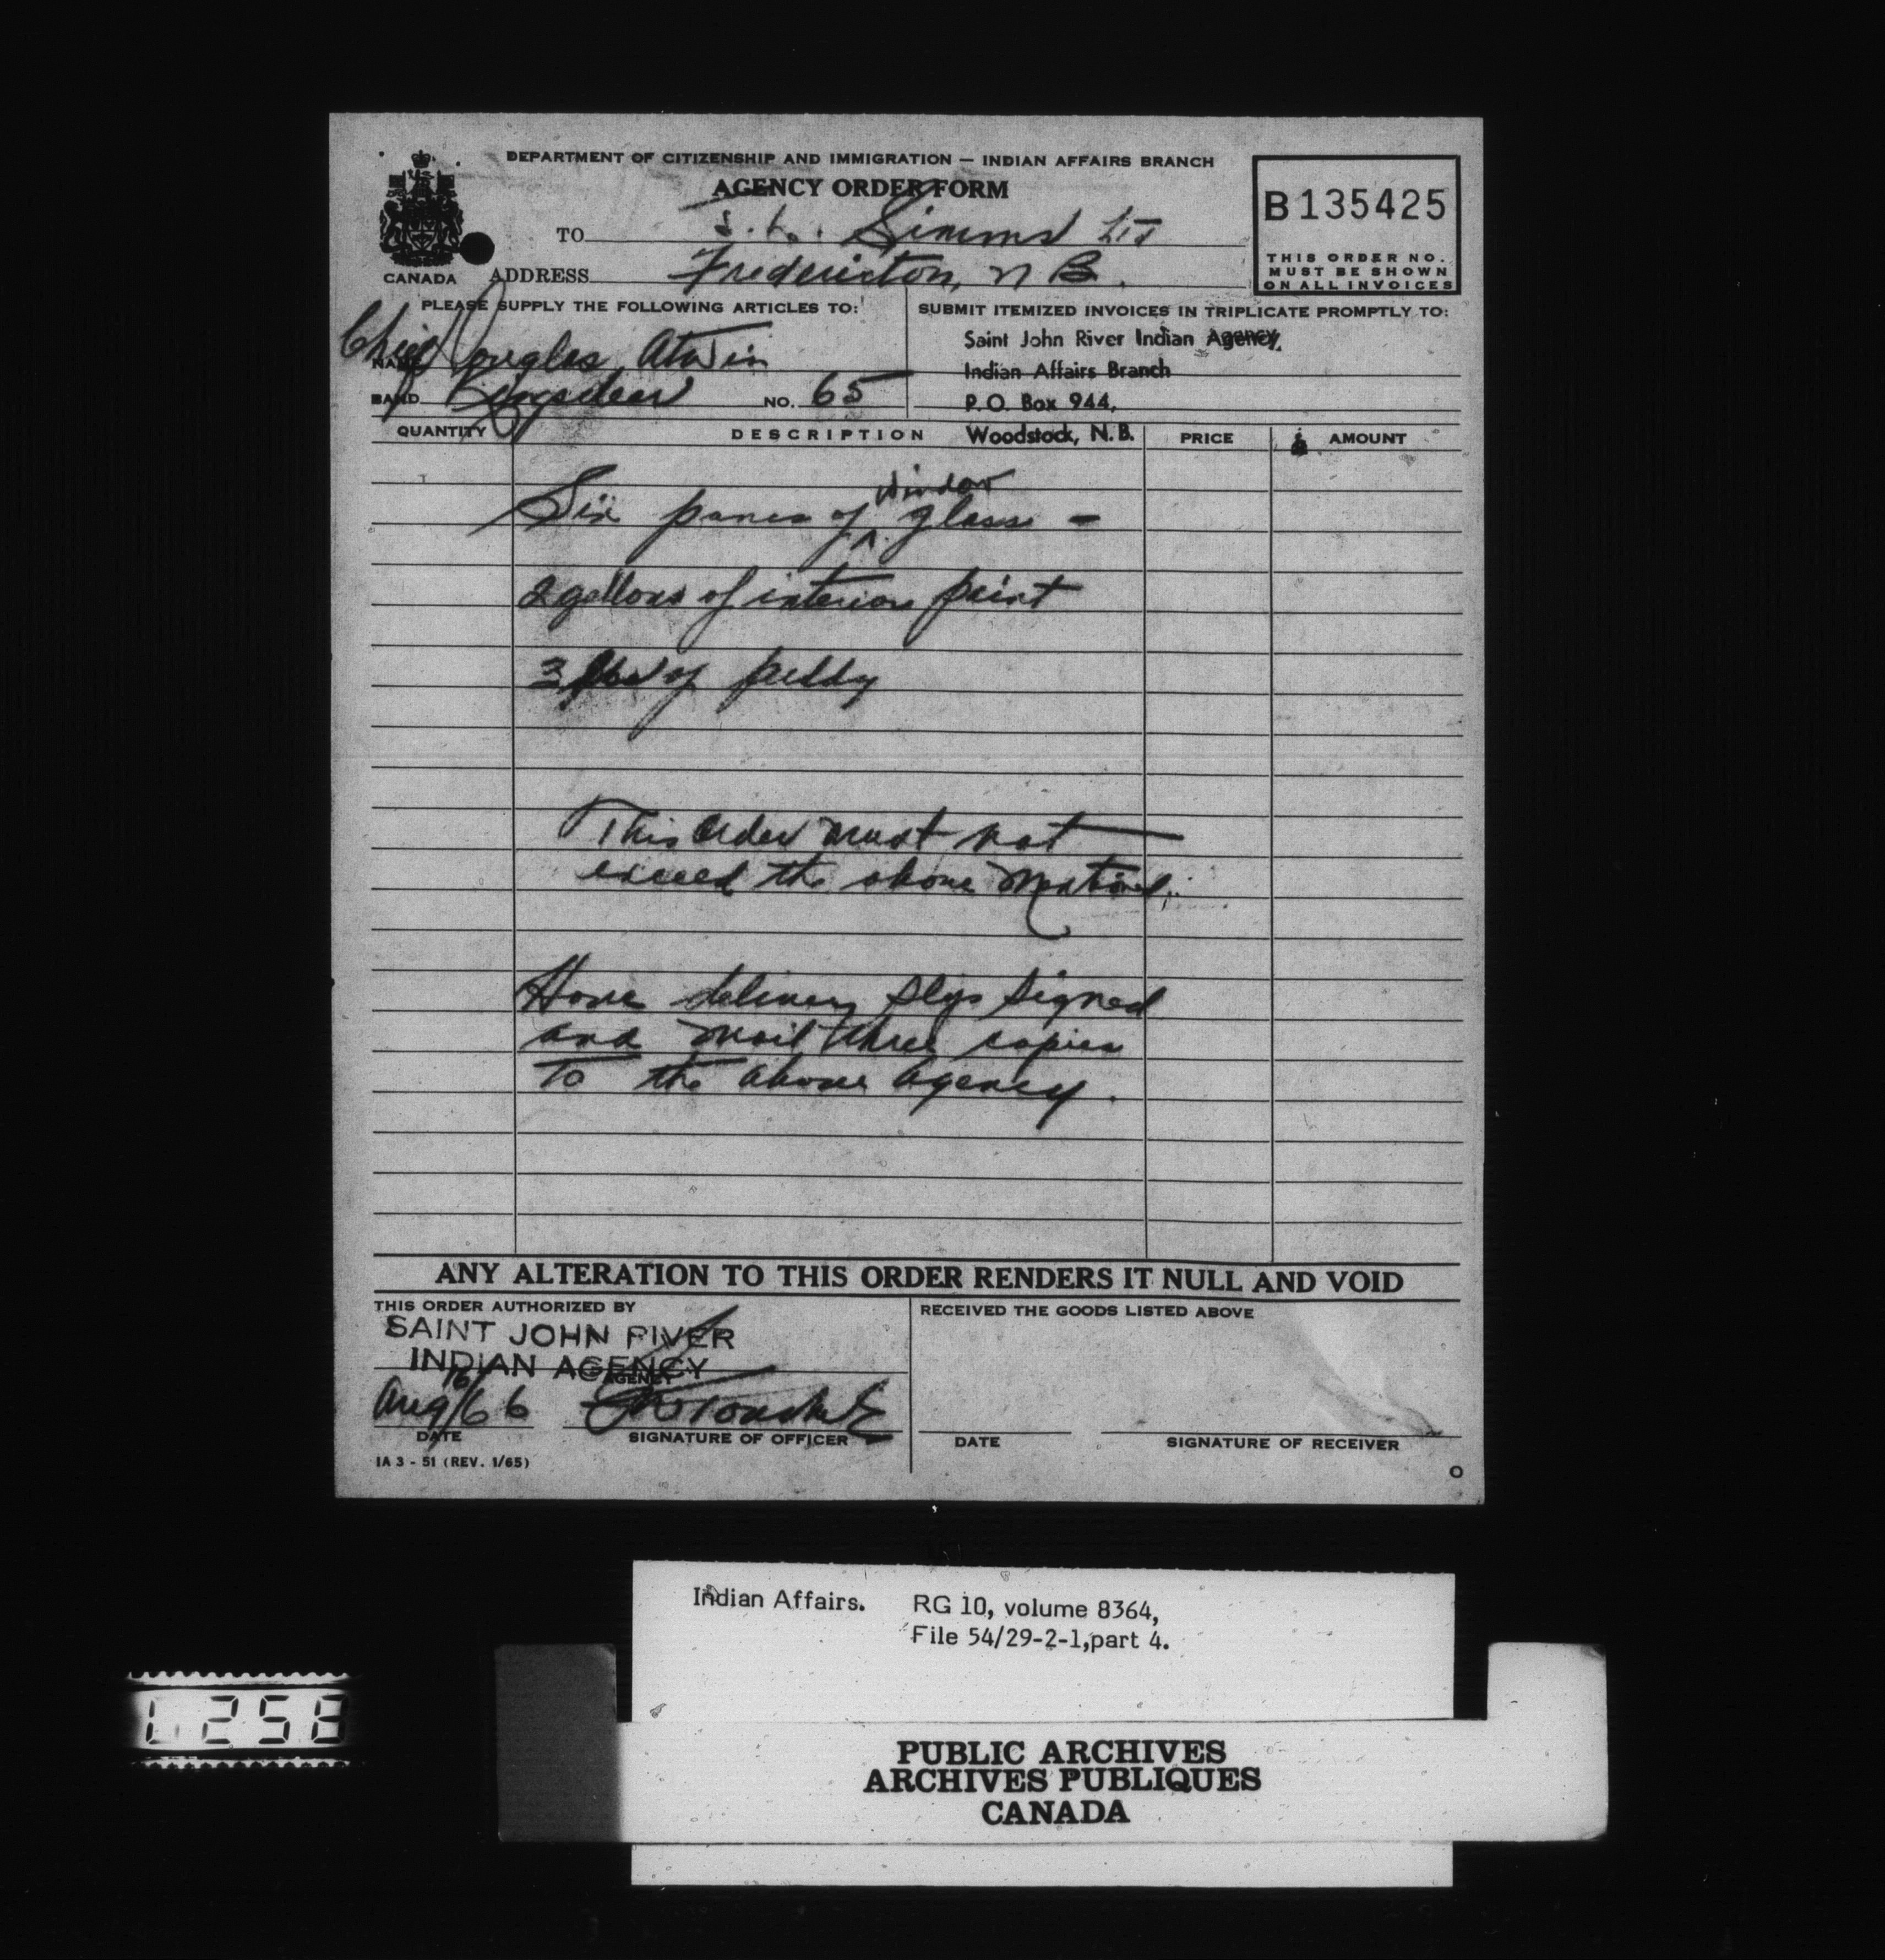 DEPARTMENT OF CITIZENSHIP AND IMMIGRATION — INDIAN AFFAIRS BRANCH
AGENCY ORDER FORM
B135425
THIS ORDER NO.
MUST BE SHOWN
ON ALL INVOICES
CANADA
TO Simms LTD
ADDRESS Fredericton, N B.
PLEASE SUPPLY THE FOLLOWING ARTICLES TO:
NAME Chief Douglas Atwin
BAND Kingsclear NO. 65
SUBMIT ITEMIZED INVOICES IN TRIPLICATE PROMPTLY TO:
Saint John River Indian Agency,
Indian Affairs Branch
P.O. Box 944,
Woodstock, N.B.
QUANTITY DESCRIPTION PRICE AMOUNT
Six panes of window glass -
2 gallons of interior paint
3 lbs of puddy
This order must not
exceed the above mentioned.
Have delivery slips signed
and mail three copies
to the above agency.
ANY ALTERATION TO THIS ORDER RENDERS IT NULL AND VOID
THIS ORDER AUTHORIZED BY
SAINT JOHN RIVER
INDIAN AGENCY
AGENCY
Aug 16/66
DATE SIGNATURE OF OFFICER
RECEIVED THE GOODS LISTED ABOVE
DATE SIGNATURE OF RECEIVER
IA 3 - 51 (REV. 1/65)
Indian Affairs. RG 10, volume 8364,
File 54/29-2-1,part 4.
PUBLIC ARCHIVES
ARCHIVES PUBLIQUES
CANADA